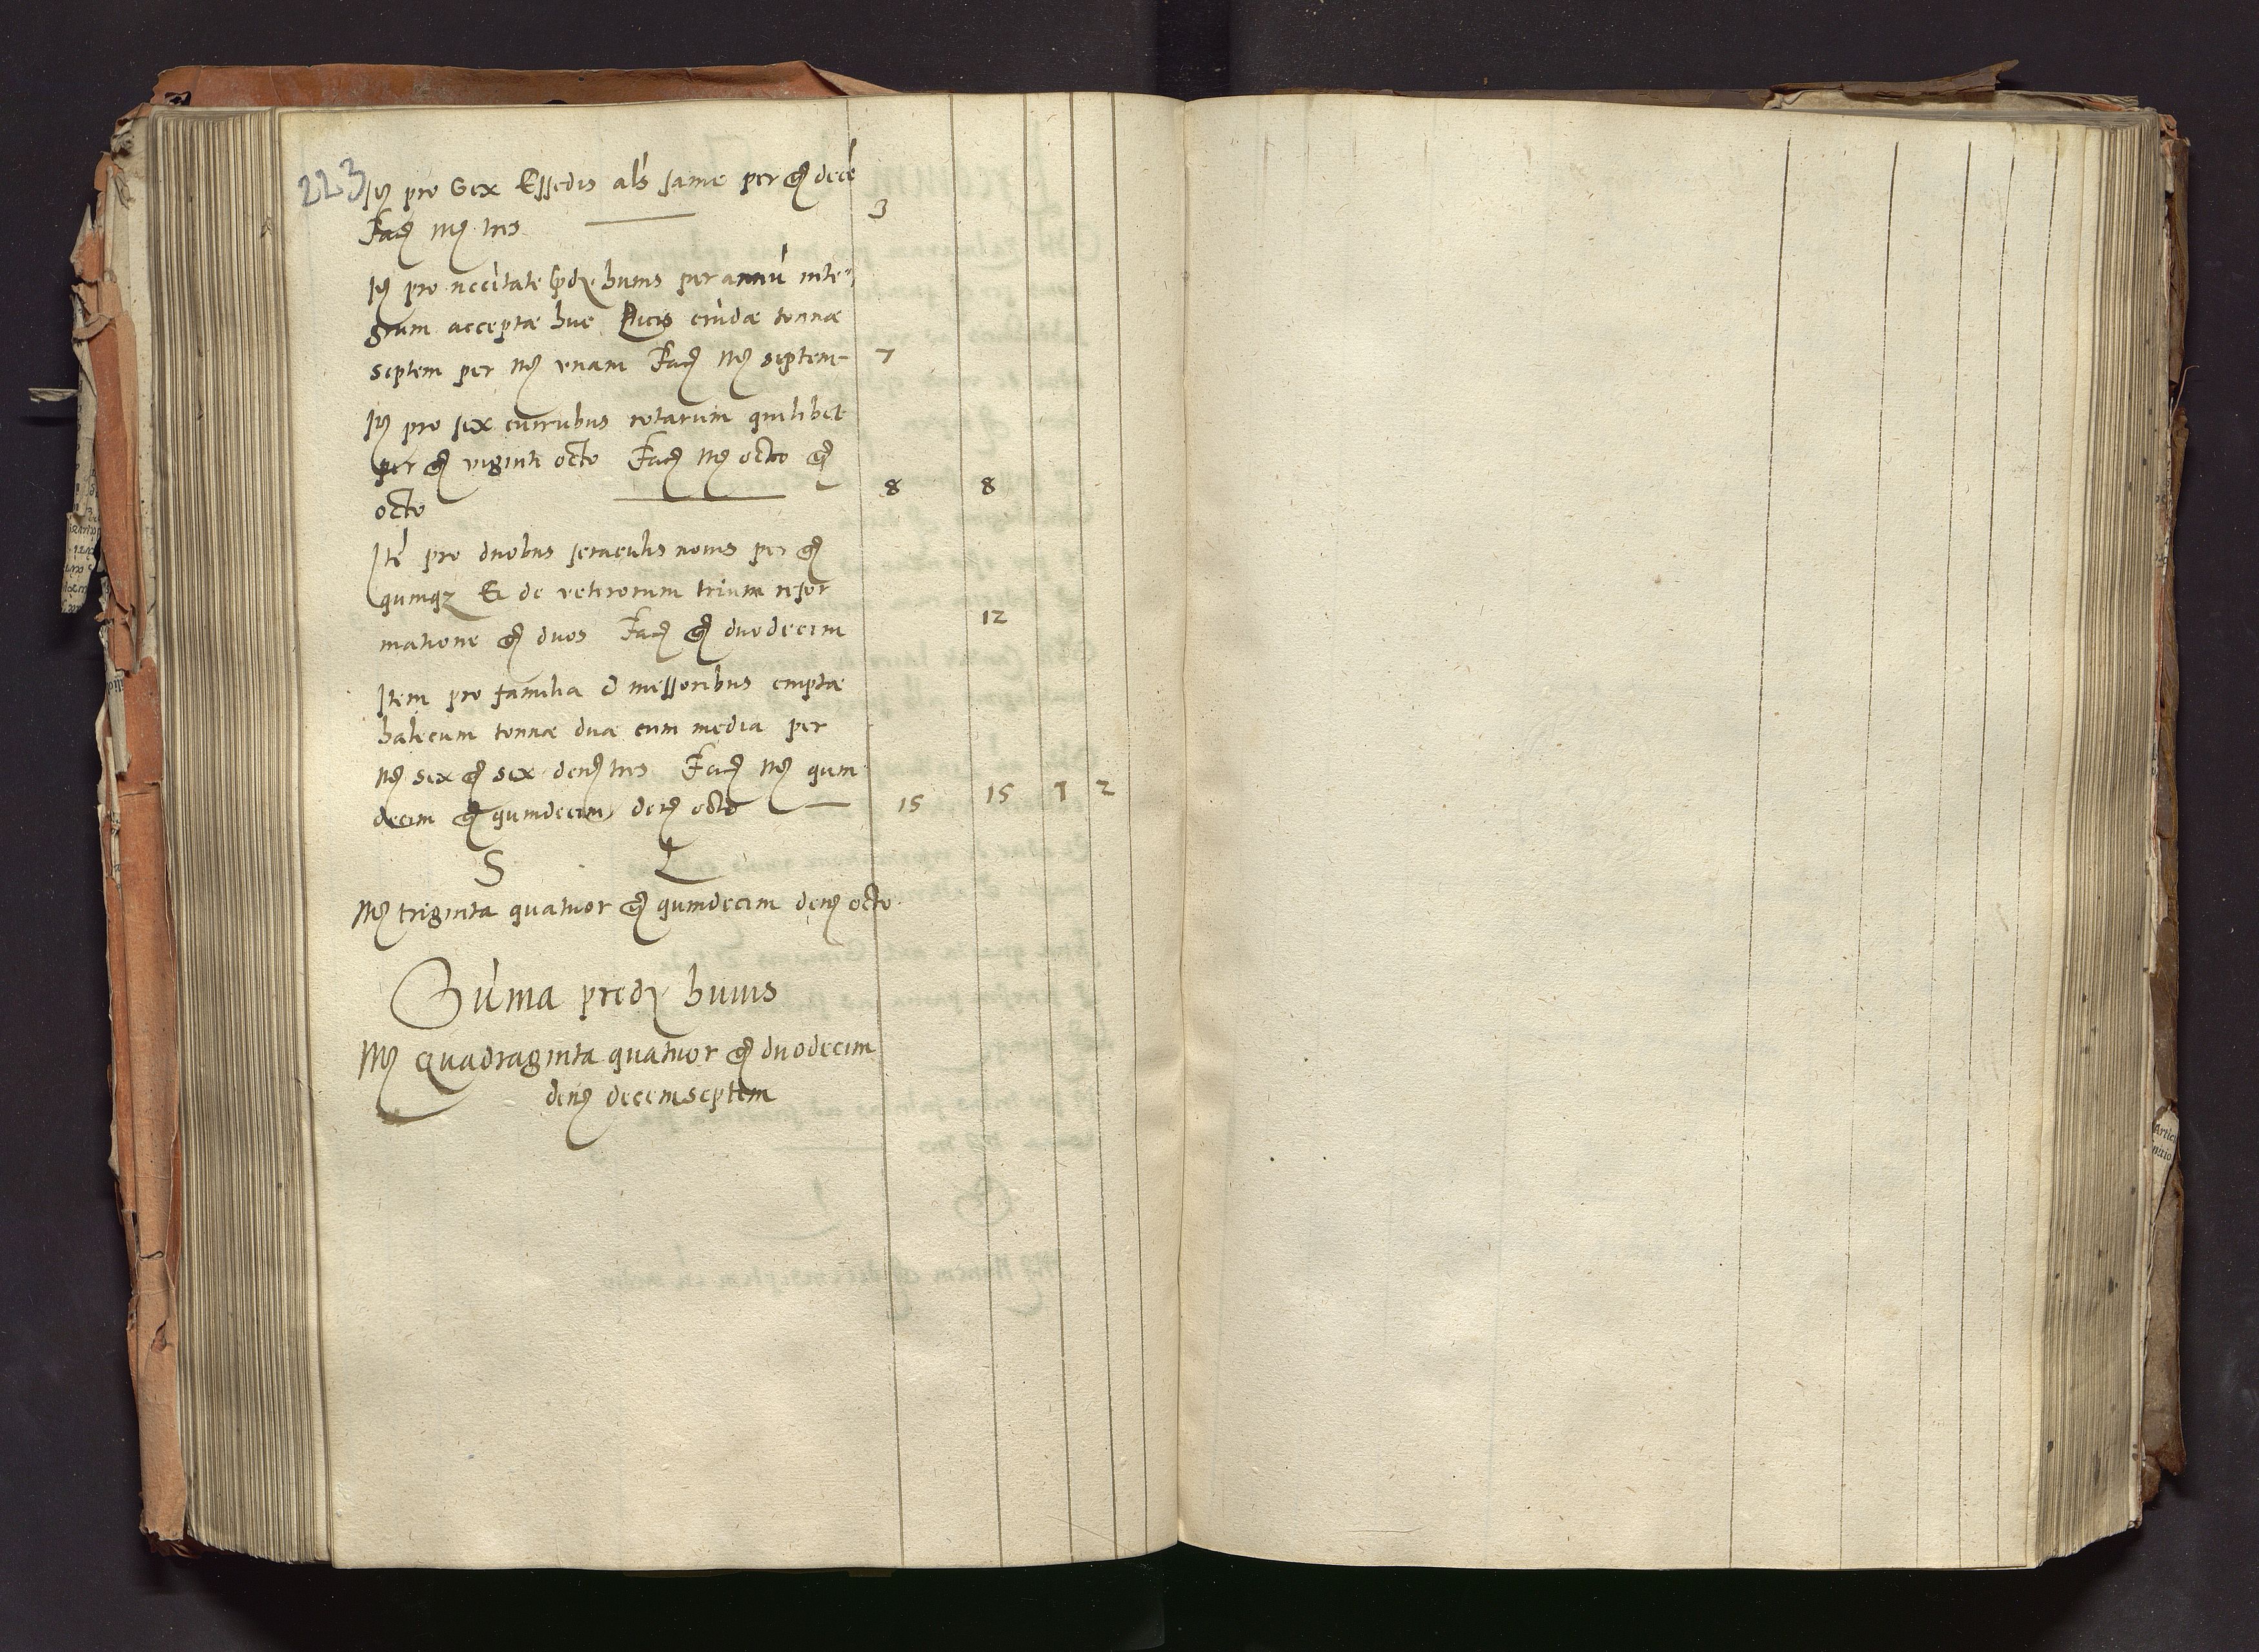 223
Itē pro Sex Essedis als sanie per gͬ decē
Facͭ mͬ tres 3
Itē pro nccitate prdͬ huius per annū inte-
grum acceptæ huc picis eiusdæ tonnæ
septem per mͬ unam Facͭ mͬ septem 7
Itē pro sex curribus rotarum quilibet
per gͬ viginti octo Facͭ mͬ octo gͬ
octo 8 8
Itē pro duobus seraculis novis per gͬ
quinqȝ Et de veterorum trium refor
matione gͬ duos Facͭ gͬ duodecim 12
Item pro familia & messoribus emptæ
halecum tonnæ duæ cum media per
mͬ sex gͬ sex denͬ tres Facͭ mͬ quin-
decim gͬ quindecim denͬ octo 15 15 1 2
S L
Mͬ triginta quatuor gͬ quindecim denͬ octo
Sūma predͬ huius
Mͬ Quadraginta quatuor gͬ duodecim
denͬ decemseptem